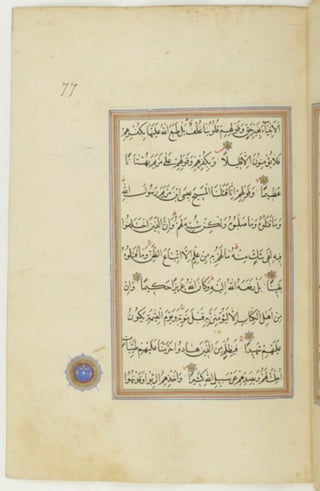 77
الانبياء بغير حق وقولهم قلوبنا غلف بل طبع الله عليها بكفرهم
فلا يؤمنون الا قليلا وبكفرهم وقولهم على مريم بهتانا
عظيما وقولهم انا قتلنا المسيح عيسى ابن مريم رسول الله
وما قتلوه وما صلبوه ولكن شبه لهم وان الذين اختلفوا
فيه لفى شك منه ما لهم به من علم الا اتباع الظن وما قتلوه
يقينا بل رفعه الله اليه وكان الله عزيزا حكيما وان
من اهل الكتاب الا ليؤمنن به قبل موته ويوم القيمة يكون
عليهم شهيدا فبظلم من الذين هادوا حرمنا عليهم طيبات
احلت لهم وبصدهم عن سبيل الله كثيرا واخذهم الربوا وقد نهوا